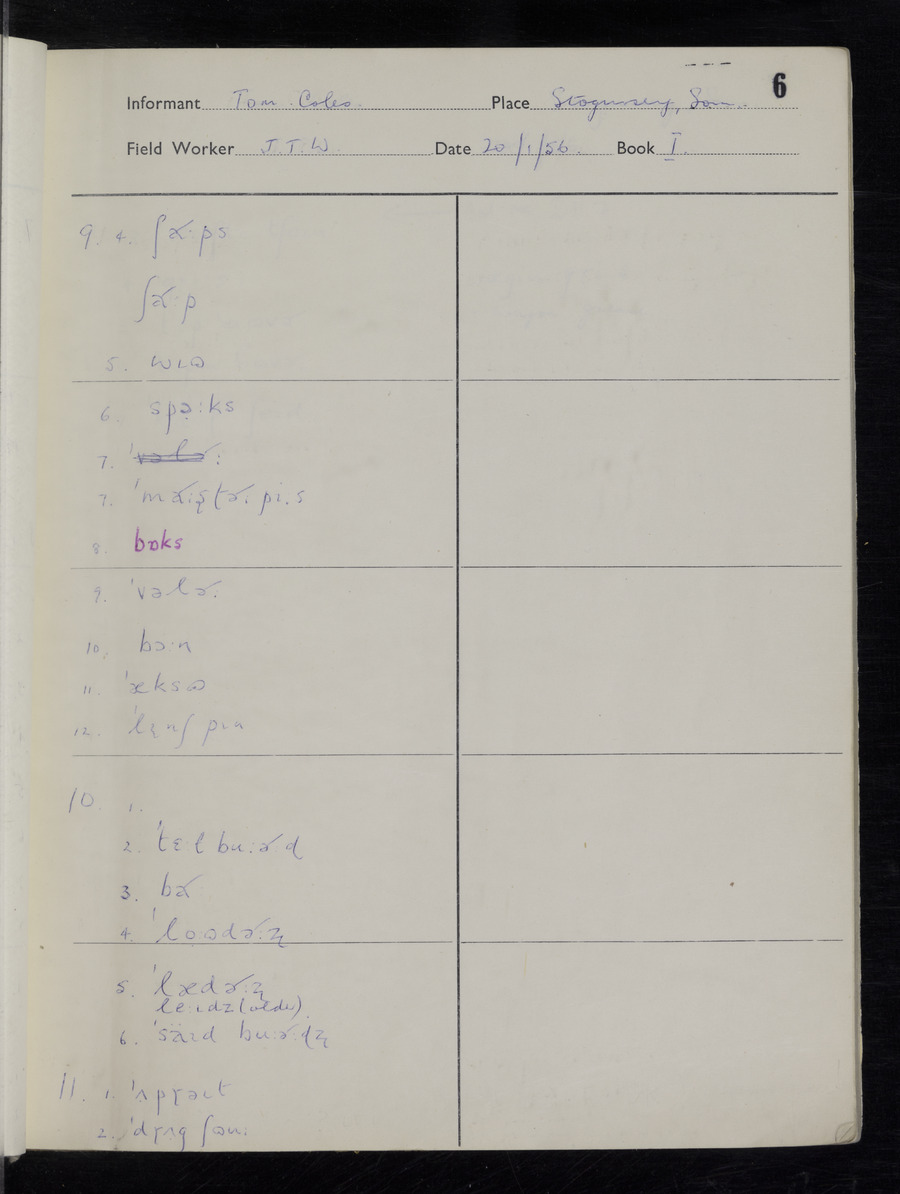 6
Informant Tom Coles Place Stogursey, Som.
Field Worker J.T.W. Date 20/1/56. Book I.
9. 4. ʃɑ˞·ps
ʃɑ˞·p
5. wɪə
6. spə̣:ks
7. ˈvələ˞:
7. ˈmɑ˞:ʂtə˞: pi:s
8. bɒks
9. ˈvələ˞:
10. bɔ:n
11. ˈæksə
12. ˈlɛ̣nʃ pɪn
10. 1.
2. ˈtɛ·l bu:ə˞d
3. bɑ˞
4. ˈlo̜ədə˞:ʐ
5. ˈlædə˞:ʐ
le:ɪdz (older)
6. ˈsäɪd bu:ə˞:ɖʐ
11. 1. ˈʌpɽəɪt
2. ˈdɽʌg ʃəu: